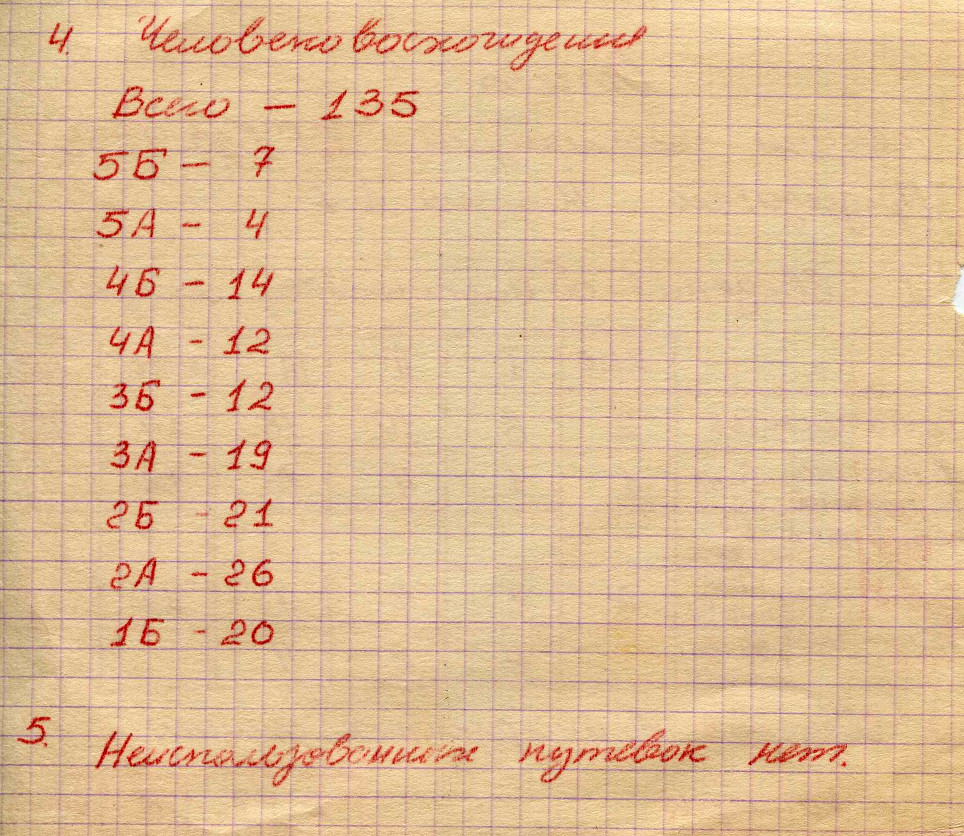 4. Человековосхождения
Всего — 135
5Б — 7
5А - 4
4Б - 14
4А - 12
3Б - 12
3А - 19
2Б - 21
2А - 26
1Б - 20
5. Неиспользованных путевок нет.